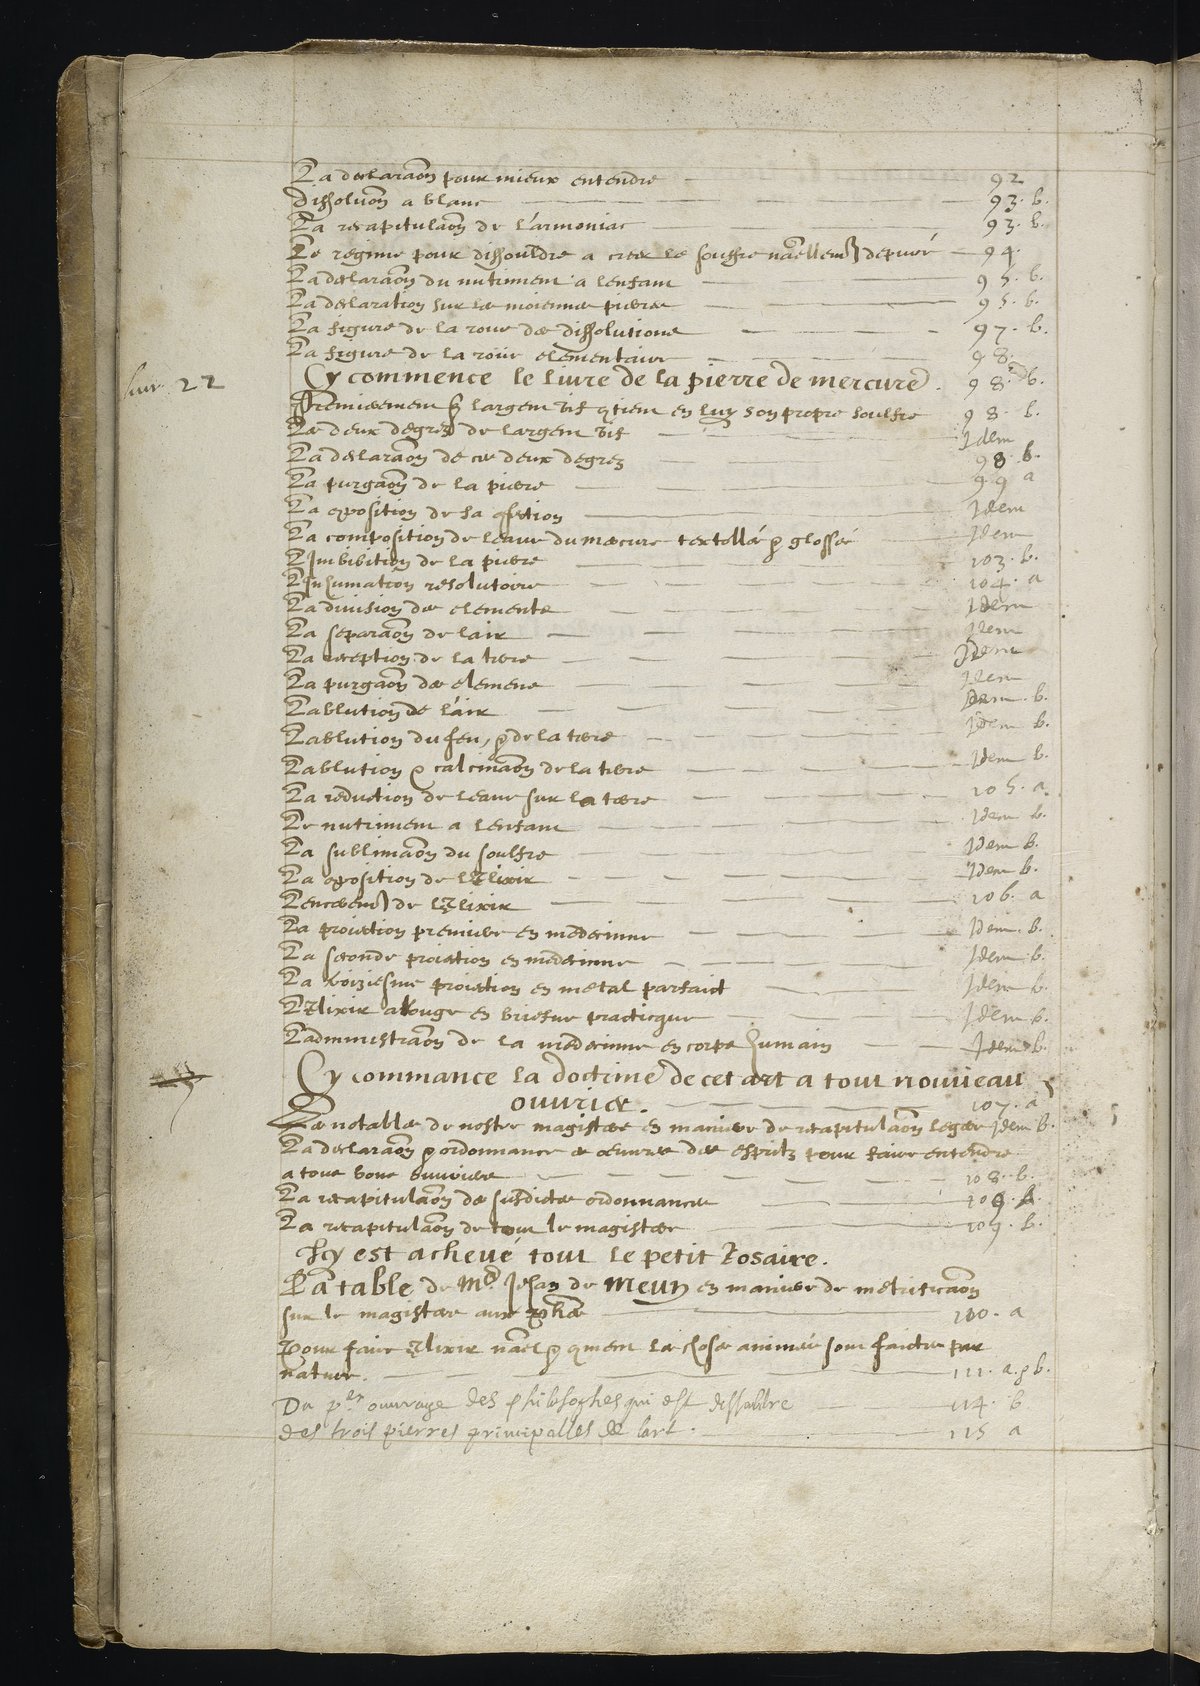 La declaraōn pour mieux entendre 92
Dissoluōn a blanc 93. b.
La recapitulaōn de l'armoniac 93. b.
Le regime pour dissouldre a creer le souffre depuré 94.
La declaraōn du nutriment a lenfant 95. b.
La declaration sur les moiennes pierres 95. b.
La figure de la roue des dissolutions 97. b.
La figure de la roüe elementaire 98.
liure 22
Cy commence le liure de la pierre de mercure. 98. b.
Premierement largent vif en luy son propre soulfre 98. b.
Les deux degrez de largent vif Idem
La declaraōn de ces deux degrez 98. b.
La purgaōn de la pierre 99 a
La exposition de la Idem
La composition de leaue du mercure glossée Idem
L'imbibition de la pierre 103. b.
L'inhumation resolutoire 104. a
La diuision des elements Idem
La separaōn de lair Idem
La reception de la terre Idem
La purgaōn des elemens Idem
Lablution de l'air Idem. b.
Lablution du feu, & de la terre Idem b.
Lablution & calcinaōn de la terre Idem b.
La reduction de leaue sur la terre 105. a.
Le nutriment a lenfant Idem b.
La sublimaōn du soulfre Idem b.
La de lElixir Idem b.
de lElixir 106. a
La proiection premiere en medecinne Idem. b.
La seconde proiection en medecinne Idem b.
La troiziesme proiection en metal parfaict Idem b.
LElixir a Rouge en briefue practicque Idem b.
Ladministraōn de la medecinne en corps humain Idem b.
Cy commance la doctrine de cet art a tout nouueau
ouurier. 107. a
Les notables de nostre magistere en maniere de recapitulaōn legere Idem b.
La declaraōn & ordonnance des espritz pour faire entendre
a tous bons ouuriers 108. b.
La recapitulaōn des susdictes ordonnances 109. b.
La recapitulaōn de tout le magistere 109. b.
Icy est acheué tout le petit Rosaire.
La table de Me. Jehan de Meun en maniere de
sur le magistere aux 110. a
Pour faire Elixir & les choses animées sont faictes par
nature. 111. a. & b.
Du per ouurage des philosophes qui est dissouldre 114. b
des trois pierres principalles de lart. 115 a